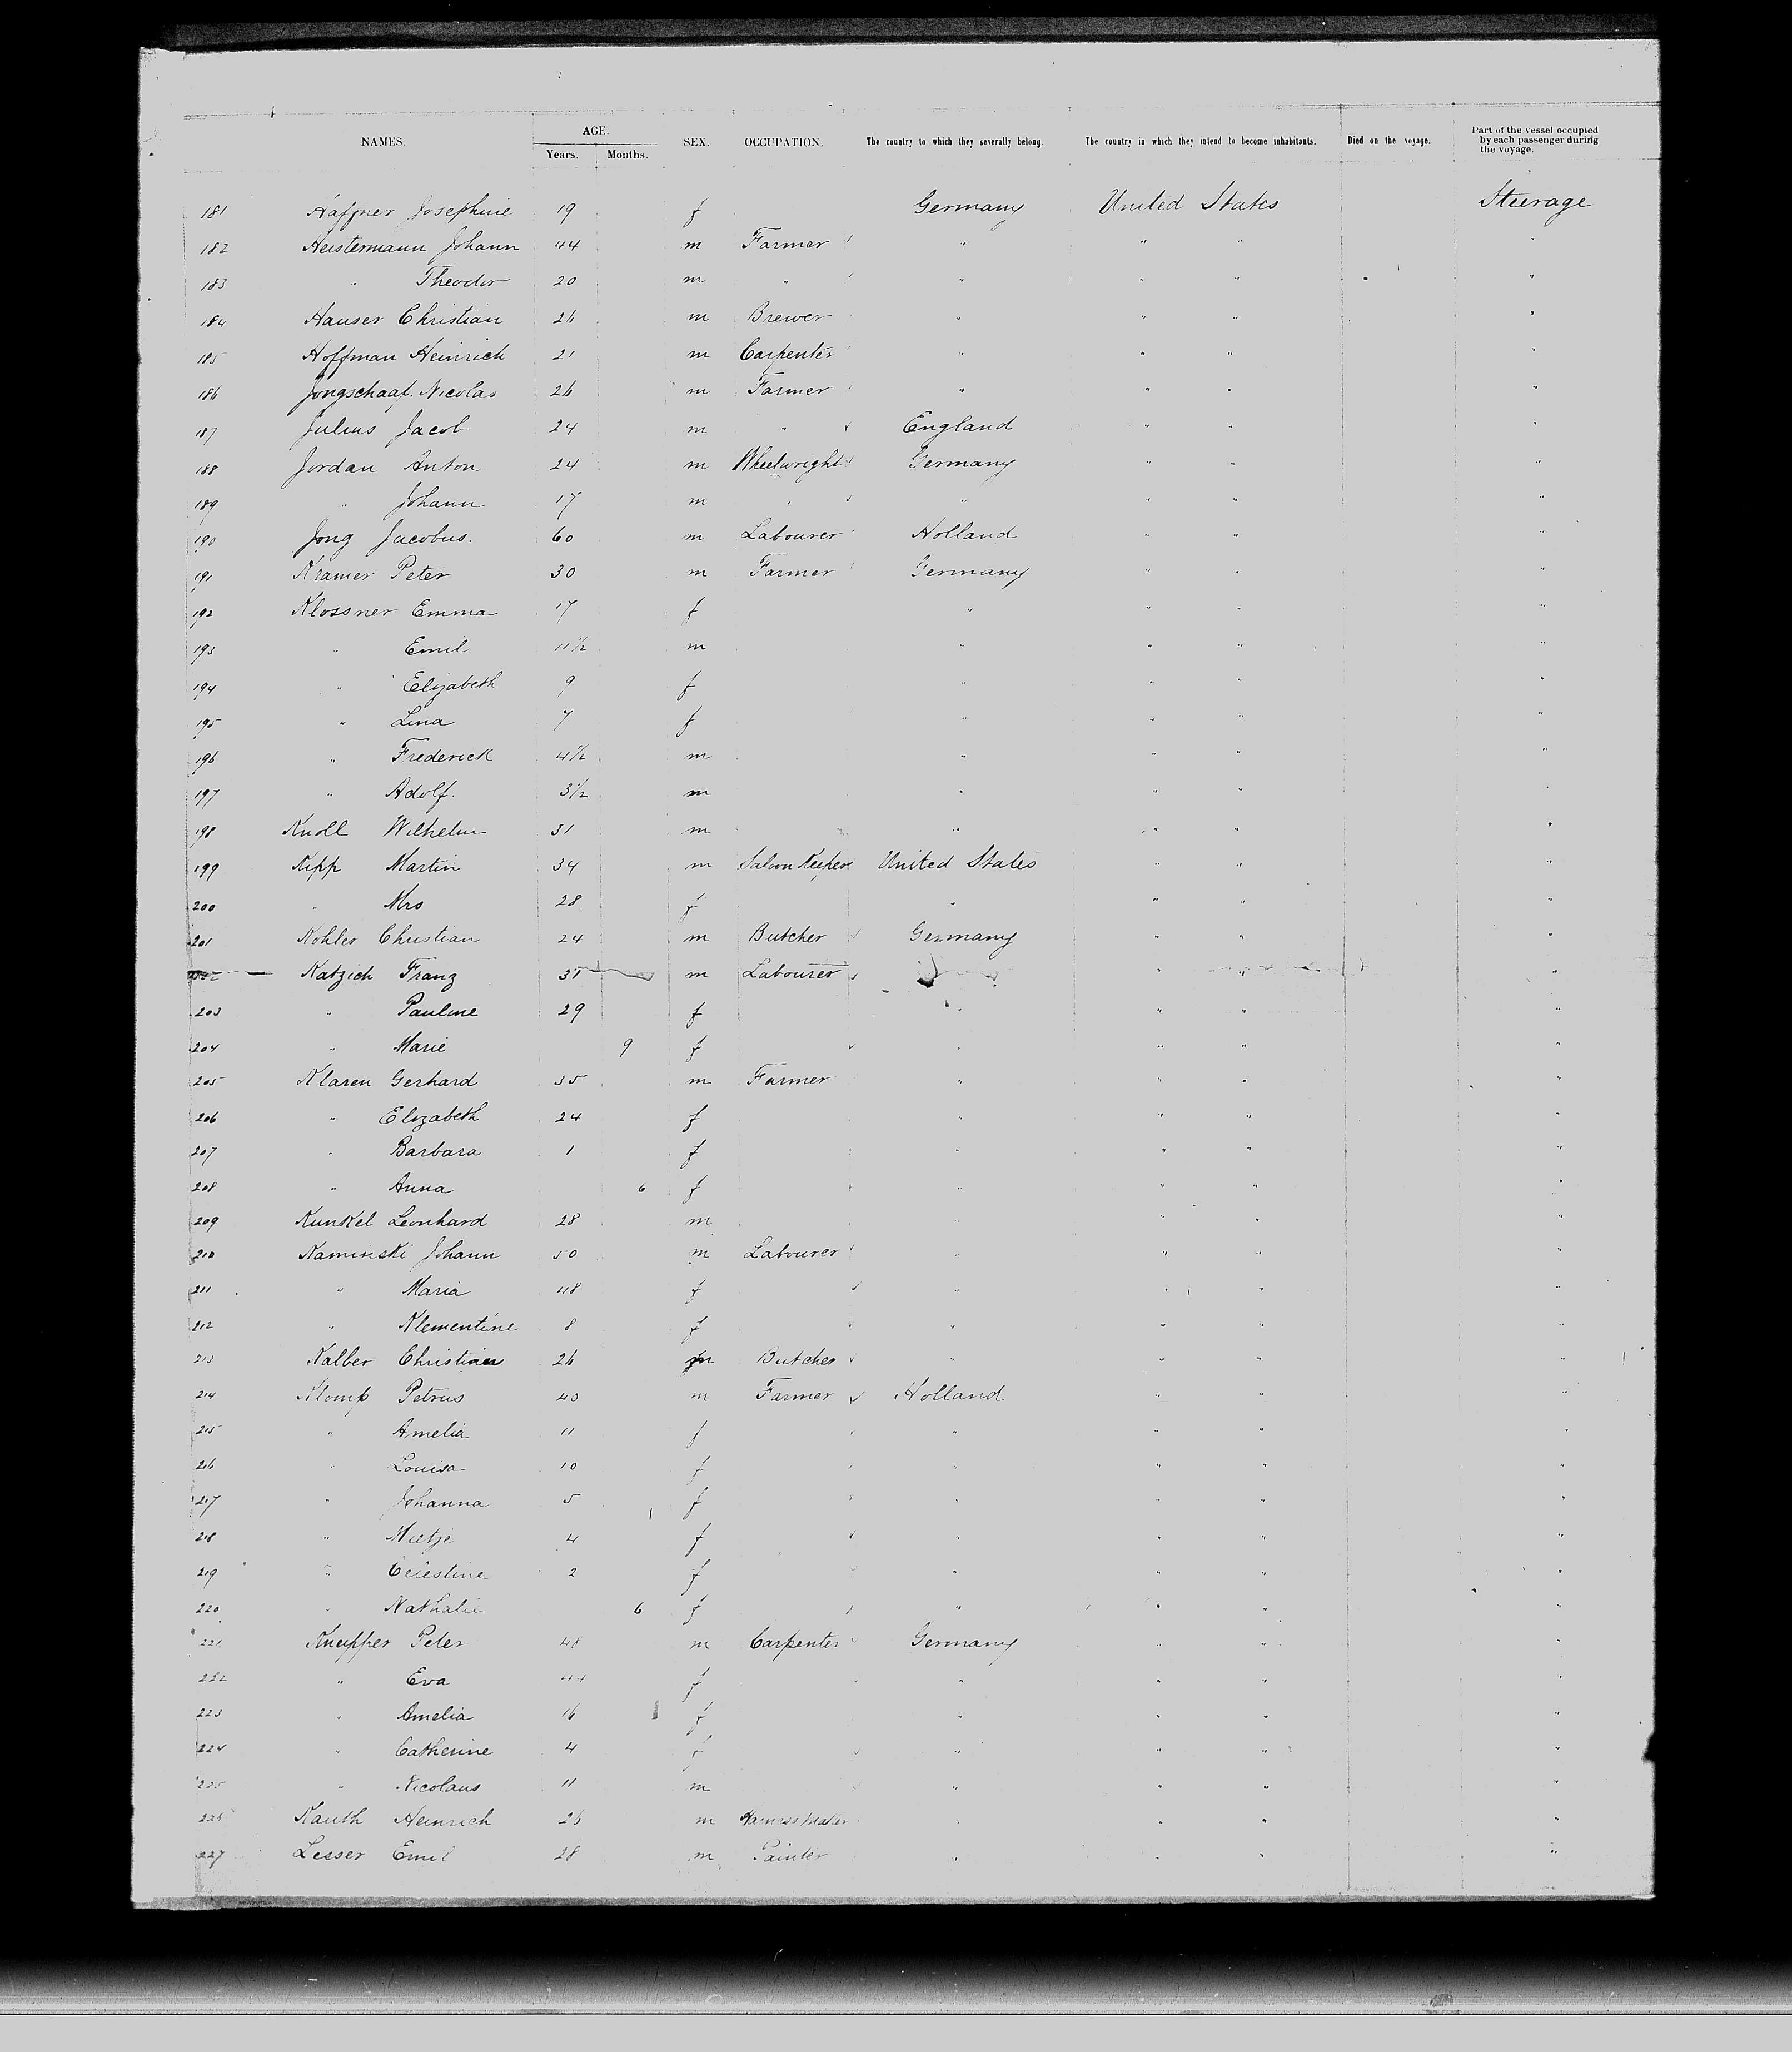 NAMES. AGE. SEX. OCCUPATION. The country to which they severally belong. The country in which they intend to become inhabitants. Died on the voyage. Part of the vessel occupied by each passenger during the voyage.
Years. Months.
181 Haffner Josephine 19 f Germany United States Steerage
182 Heistermann Johann 44 m Farmer " " " "
183 " Theodor 20 m " " " " "
184 Hauser Christian 26 m Brewer " " " "
185 Hoffman Heinrich 21 m Carpenter " " " "
186 Jongschaaf. Nicolas 26 m Farmer " " " "
187 Julius Jacob 24 m " England " " "
188 Jordan Anton 24 m Wheelwright Germany " " "
189 " Johann 17 m " " " " "
190 Jong Jacobus. 60 m Labourer Holland " " "
191 Kramer Peter 30 m Farmer Germany " " "
192 Klossner Emma 17 f " " " "
193 " Emil 11½ m " " " "
194 " Elizabeth 9 f " " " "
195 " Lina 7 f " " " "
196 " Frederick 4½ m " " " "
197 " Adolf. 3½ m " " " "
198 Knoll Wilhelm 31 m " " " "
199 Kipp Martin 34 m Saloon Keeper United States " " "
200 " Mrs 28 f " " " "
201 Kohler Christian 24 m Butcher Germany " " "
202 Katzich Franz m Labourer " " "
203 " Pauline 29 f " " " "
204 " Marie 9 f " " " "
205 Klaren Gerhard 35 m Farmer " " " "
206 " Elizabeth 24 f " " " "
207 " Barbara 1 f " " " "
208 " Anna 6 f " " " "
209 Kunkel Leonhard 28 m " " " "
210 Kaminski Johann 50 m Labourer " " " "
211 " Maria 48 f " " " "
212 " Klementine 8 f " " " "
213 Kalber Christian 26 m Butcher " " " "
214 Klomp Petrus 40 m Farmer Holland " " "
215 " Amelia 11 f " " " "
216 " Louisa 10 f " " " "
217 " Johanna 5 f " " " "
218 " Mietje 4 f " " " "
219 " Celestine 2 f " " " "
220 " Nathalie 6 f " " " "
221 Kneipper Peter 48 m Carpenter Germany " " "
222 " Eva 44 f " " " "
223 " Amelia 16 f " " " "
224 " Catherine 4 f " " " "
225 " Nicolaus 11 m " " " "
226 Kauth Heinrich 26 m Harness Maker " " " "
227 Lesser Emil 28 m Painter " " " "